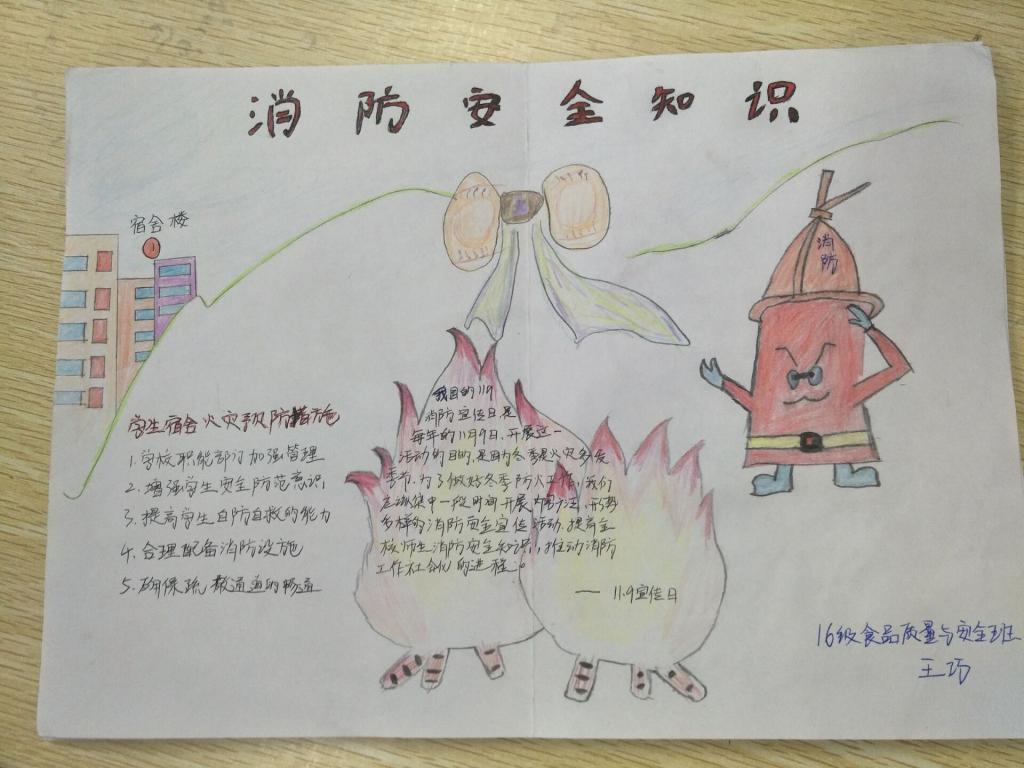 消防安全知识
宿舍楼
消防
学生宿舍火灾预防措施
1.学校职能部门加强管理
2.增强学生安全防范意识
3.提高学生自防自救的能力
4.合理配备消防设施
5.确保疏散通道的畅通
我国的119
消防宣传日是
每年的11月9日,开展这一
活动的目的,是因为冬季是火灾多发
季节,为了做好冬季防火工作,我们
应该集中一段时间开展内方法,形势
多样的消防安全宣传活动,提高全
校师生消防安全知识,推动消防
工作社会化的进程。
— 11.9宣传日
16级食品质量与安全班
王巧